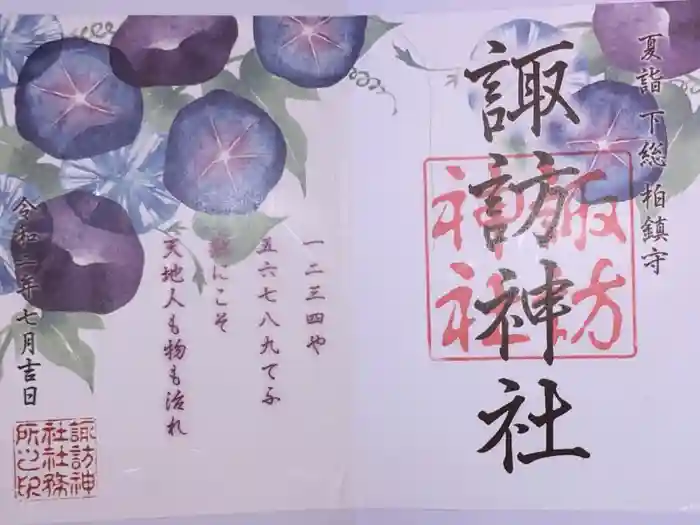 夏詣 下総 柏鎮守
諏訪神社
諏訪
神社
一二三四や
五六七八九てふ
数にこそ
天地人も物も治れ
令和二年七月吉日
諏訪神
社社務
所之印